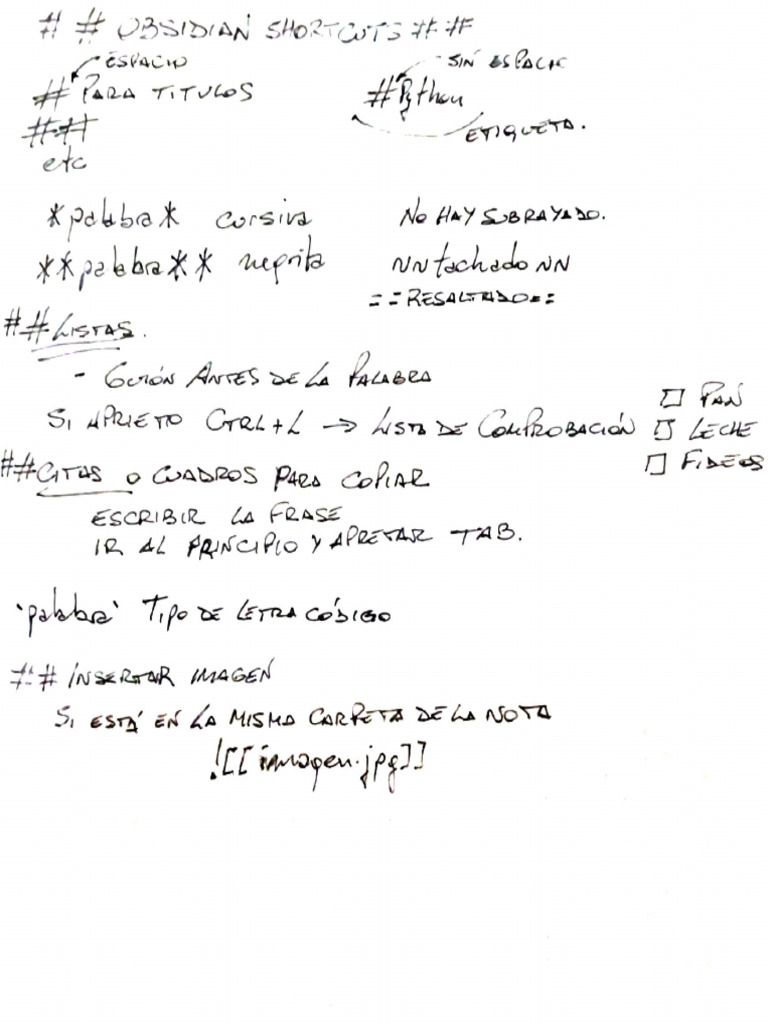 # # OBSIDIAN SHORTCUTS # #
ESPACIO
# PARA TITULOS
##
etc
SIN ESPACIO
#Python
ETIQUETA.
*palabra* cursiva
**palabra** negrita
NO HAY SUBRAYADO.
~~tachado~~
==RESALTADO==
##LISTAS.
- GUIÓN ANTES DE LA PALABRA
SI APRIETO CTRL+L → LISTA DE COMPROBACIÓN
☐ PAN
☐ LECHE
☐ FIDEOS
##CITAS O CUADROS PARA COPIAR
ESCRIBIR LA FRASE
IR AL PRINCIPIO Y APRETAR TAB.
`palabra` TIPO DE LETRA CÓDIGO
## INSERTAR IMAGEN
SI ESTÁ EN LA MISMA CARPETA DE LA NOTA
![[imagen.jpg]]